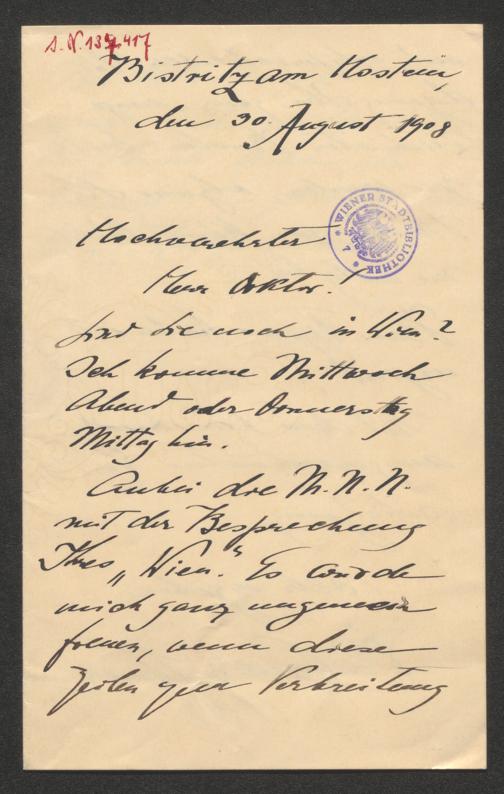 J. N. 137.417
Bistritz am Hostein,
den 30. August 1908
WIENER STADTBIBLIOTHEK
Hochverehrter
Herr Doktor!
sind Sie noch in Wien?
Ich komme Mittwoch
Abend oder Donnerstag
Mittag hin.
Anbei die M. N. N.
mit der Besprechung
Ihres „Wien." Es würde
mich ganz ungemein
freuen, wenn diese
Zeilen zur Verbreitung